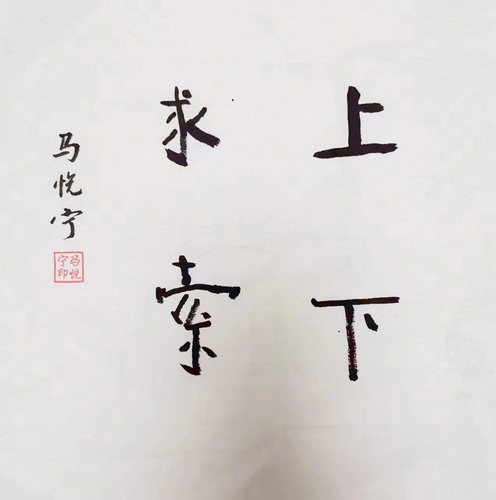 上下
求索
马悦宁
马悦
宁印